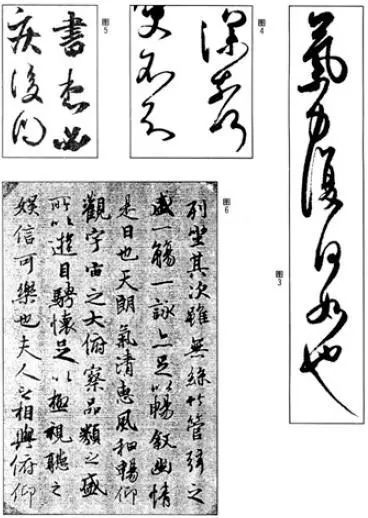 图5
書
疾後
图4
图3
氣力復何如也
图6
列坐其次雖無絲竹管弦之
盛一觴一詠亦足以暢敘幽情
是日也天朗氣清惠風和暢仰
觀宇宙之大俯察品類之盛
所以遊目騁懷足以極視聽之
娛信可樂也夫人之相與俯仰